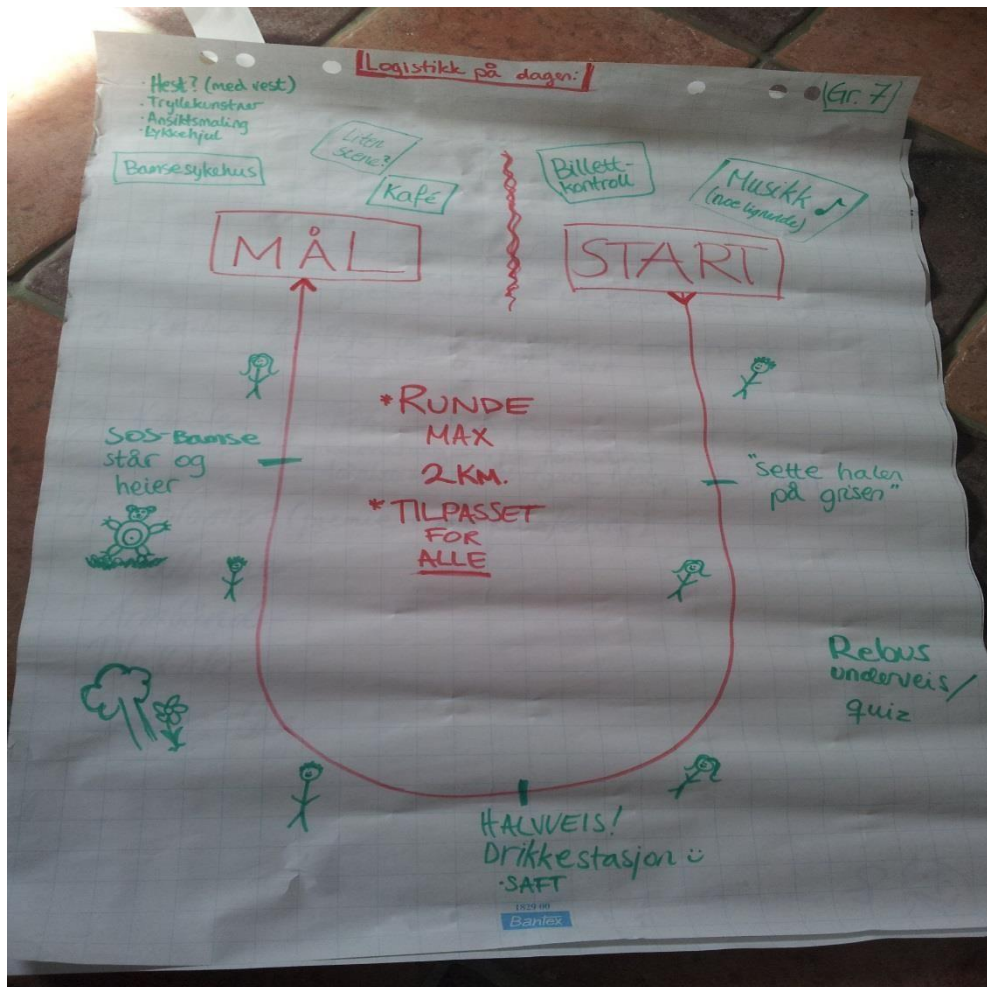 Logistikk på dagen:
Gr. 7
· Hest? (med vest)
· Tryllekunstner
· Ansiktsmaling
· Lykkehjul
Bamsesykehus
Liten
scene?
Kafé
Billett-
kontroll
Musikk
(noe lignende)
MÅL
START
* RUNDE
MAX
2 KM.
* TILPASSET
FOR
ALLE
SOS-Bamse
står og
heier
"Sette halen
på grisen"
Rebus
underveis/
quiz
HALVVEIS!
Drikkestasjon
· SAFT
1829 00
Bantex